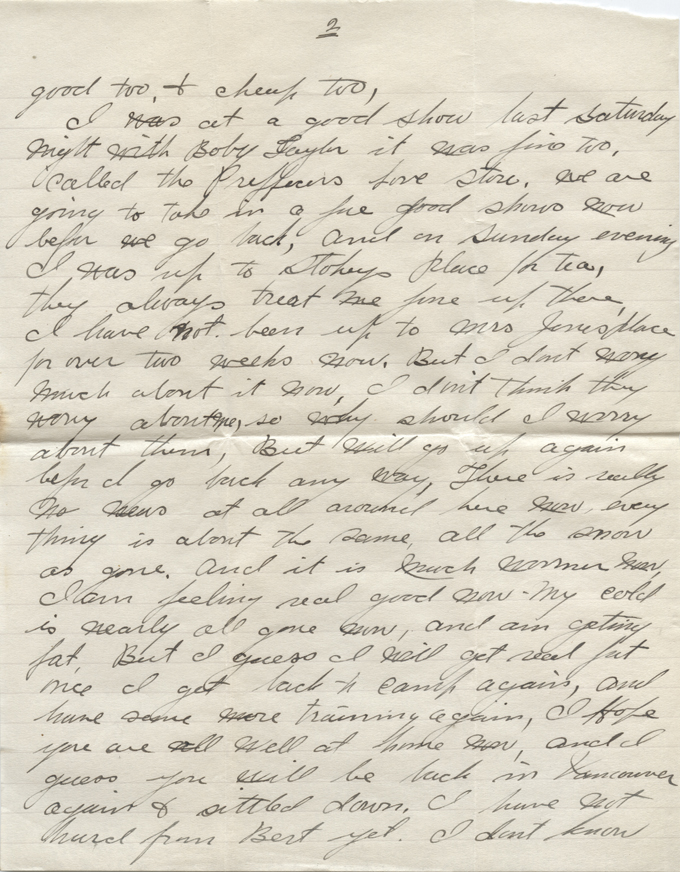 2
good too, & cheap too,
I was at a good show last Saturday
night with Boby Taylor it was fine too,
called the Prefficers love store. we are
going to take in a fue good shows now
befor we go back, and on Sunday evening
I was up to Stokeys place for tea,
they always treat me fine up there,
I have not been up to Mrs Jones place
for over two weeks now. But I dont worry
much about it now, I don't think they
worry about me, so why should I worry
about them, But will go up again
befor I go back any way, There is really
no news at all around here now, every
thing is about the same, all the snow
as gone. And it is much warmer now,
I am feeling real good now - My cold
is nearly all gone now, and am geting
fat, But I guess I will get real fat
once I get back to camp again, and
have some more training again, I Hope
you are all well at home now, and I
guess you will be back in Vancouver
again & sittled down. I have not
heard from Bert yet. I dont know